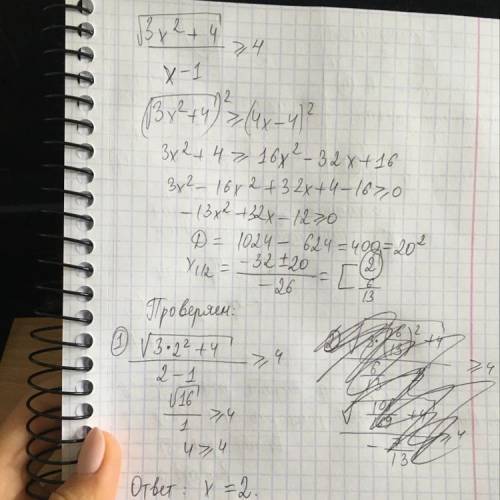 √(3x² + 4) / (x - 1) ≥ 4
(√(3x² + 4))² ≥ (4x - 4)²
3x² + 4 ≥ 16x² - 32x + 16
3x² - 16x² + 32x + 4 - 16 ≥ 0
-13x² + 32x - 12 ≥ 0
D = 1024 - 624 = 400 = 20²
x1/2 = (-32 ± 20) / -26 = [ 2
6/13
Проверяем:
① √(3·2² + 4) / (2 - 1) ≥ 4
√16 / 1 ≥ 4
4 ≥ 4
Ответ: x = 2.